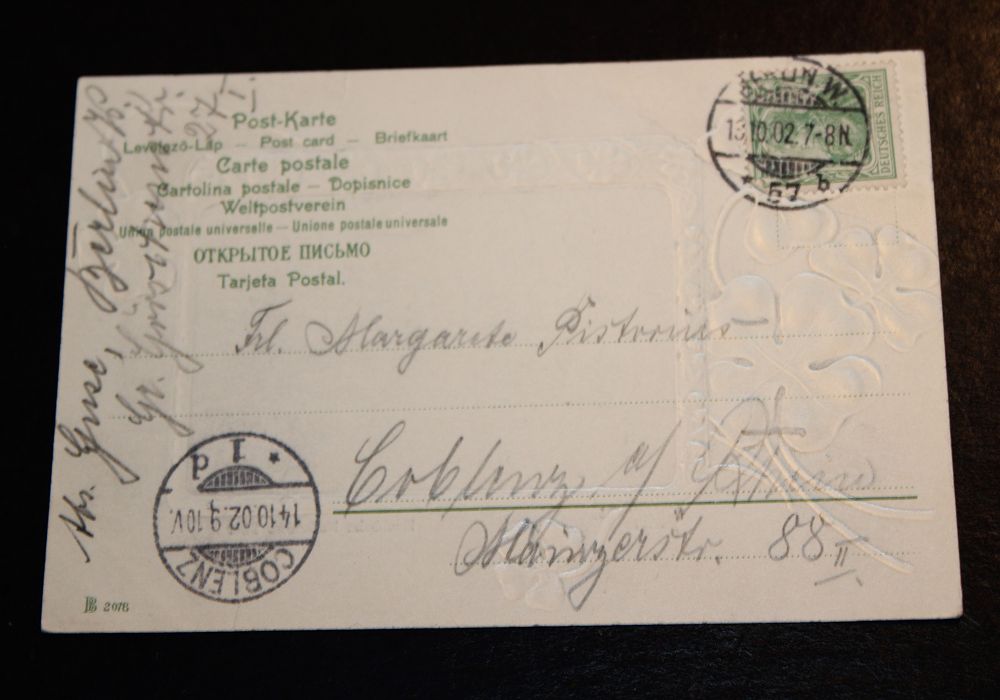 Post-Karte
Levelező-Lap – Post card – Briefkaart
Carte postale
Cartolina postale – Dopisnice
Weltpostverein
Union postale universelle – Unione postale universale
ОТКРЫТОЕ ПИСЬМО
Tarjeta Postal.
BERLIN W
13.10.02.7-8N.
* 57 b
DEUTSCHES REICH
Frl. Margarete Pistorius
Coblenz a/ Rhein
Mainzerstr. 88 II
COBLENZ
14.10.02.9-10V.
* 1 d
Berlin
27 I
2078